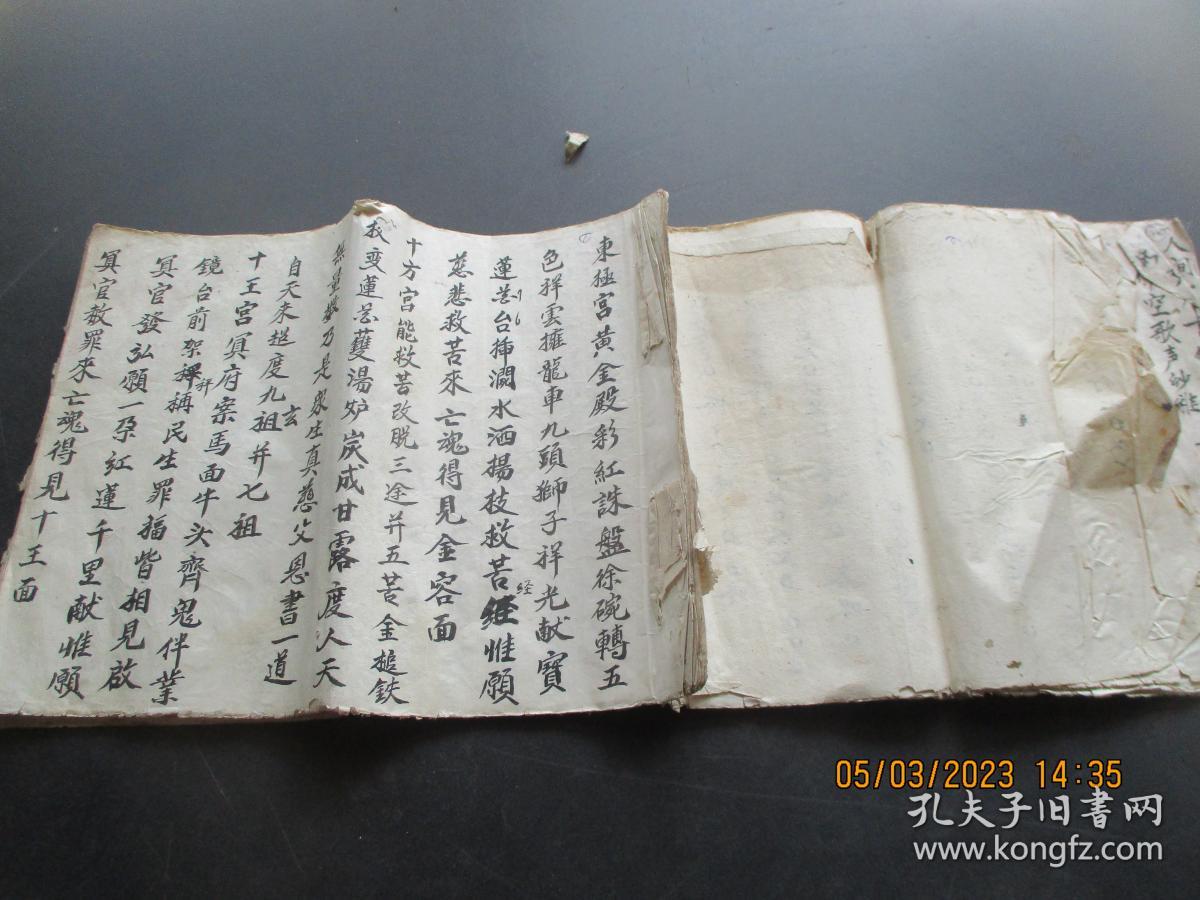 東極宮黄金殿彩紅誅盤徐碗轉五
色祥雲擁龍車九頭獅子祥光献寶
蓮花台揷澗水洒揚技救苦經惟願
経
慈悲救苦來亡魂得見金容面
十方宮能救苦改脱三途并五苦金槌鉄
杖变蓮花蠖湯炉炭成甘露度人天
無量数乃是眾生真慈父恩書一道
自天来超度九玄祖并七祖
十王宮冥府案馬面牛头齊鬼伴業
鏡台前架秤稱民生罪福皆相見啟
冥官發弘願一朶紅蓮千里献惟願
冥官赦罪来亡魂得見十王面
空歌声妙
05/03/2023 14:35
孔夫子旧書网
www.kongfz.com